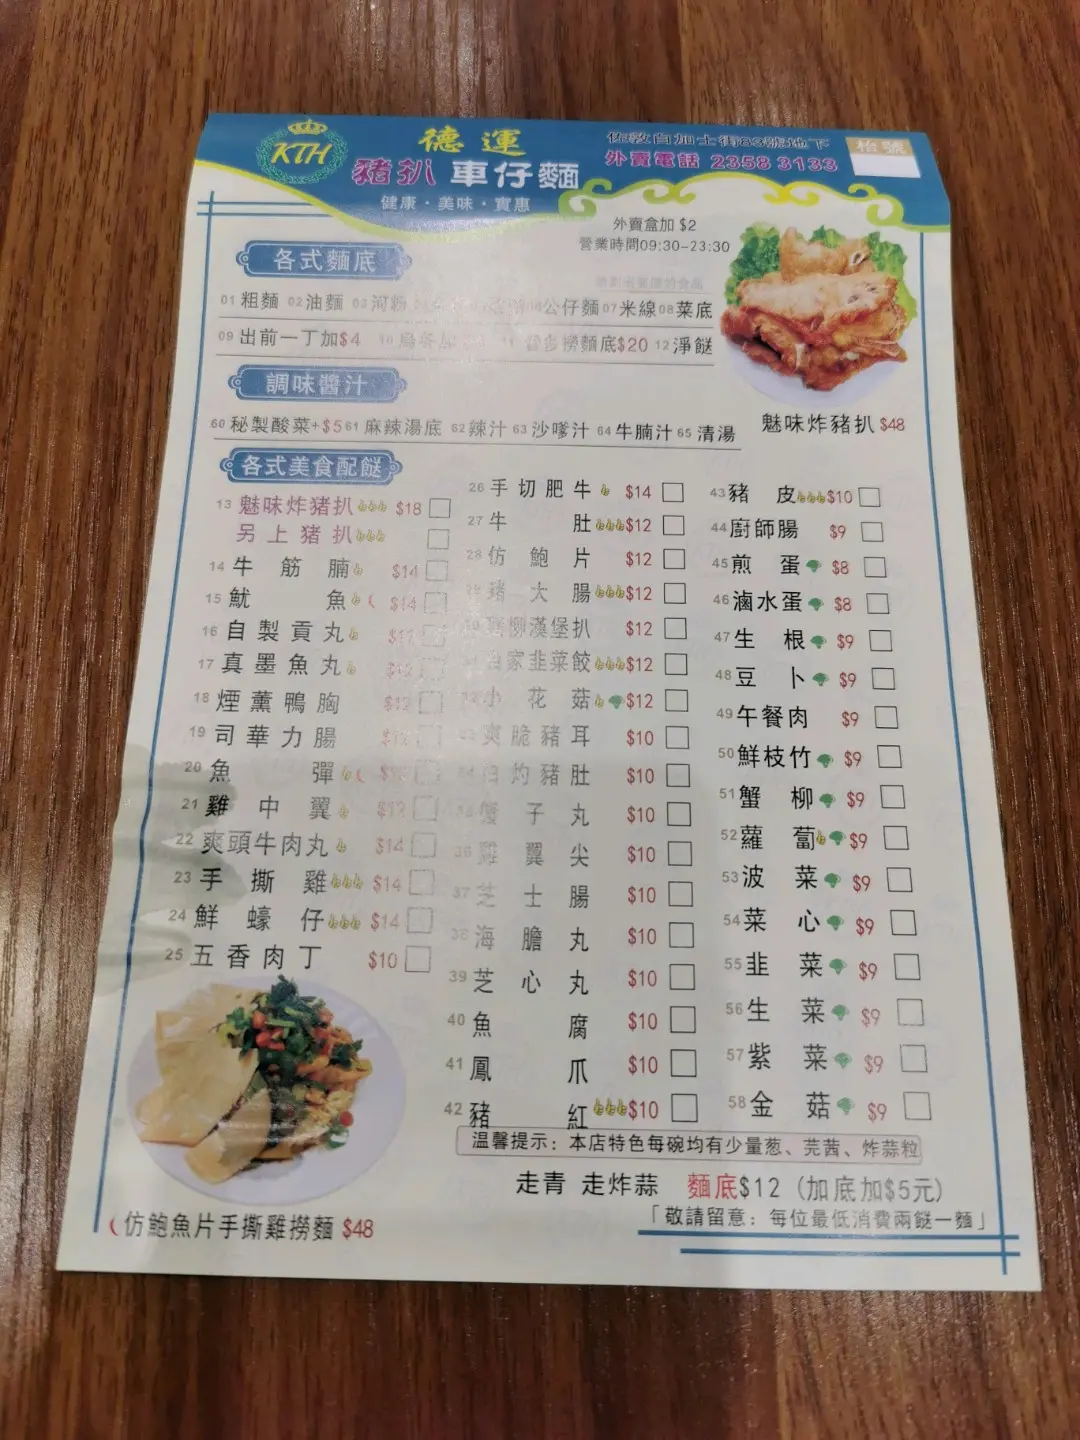 KTH
德運
豬扒 車仔麵
健康·美味·實惠
佐敦白加士街83號地下
外賣電話 2358 3133
枱號
外賣盒加 $2
營業時間09:30-23:30
各式麵底
01 粗麵 02 油麵 03 河粉 公仔麵 07 米線 08 菜底
09 出前一丁加$4 10 烏冬加 11 撈麵底$20 12 淨餸
調味醬汁
60 秘製酸菜+$5 61 麻辣湯底 62 辣汁 63 沙嗲汁 64 牛腩汁 65 清湯
魅味炸豬扒 $48
各式美食配餸
13 魅味炸猪扒 $18
另上猪扒
14 牛筋腩 $14
15 魷魚 $14
16 自製貢丸
17 真墨魚丸
18 煙薰鴨胸
19 司華力腸
20 魚彈
21 雞中翼
22 爽頭牛肉丸 $14
23 手撕雞 $14
24 鮮蠔仔 $14
25 五香肉丁 $10
26 手切肥牛 $14
27 牛肚 $12
28 仿鮑片 $12
豬大腸 $12
漢堡扒 $12
家韭菜餃 $12
小花菇 $12
爽脆豬耳 $10
灼豬肚 $10
蟹子丸 $10
36 雞翼尖 $10
37 芝士腸 $10
38 海膽丸 $10
39 芝心丸 $10
40 魚腐 $10
41 鳳爪 $10
42 豬紅 $10
43 豬皮 $10
44 廚師腸 $9
45 煎蛋 $8
46 滷水蛋 $8
47 生根 $9
48 豆卜 $9
49 午餐肉 $9
50 鮮枝竹 $9
51 蟹柳 $9
52 蘿蔔 $9
53 波菜 $9
54 菜心 $9
55 韭菜 $9
56 生菜 $9
57 紫菜 $9
58 金菇 $9
溫馨提示：本店特色每碗均有少量葱、芫茜、炸蒜粒
走青 走炸蒜 麵底$12 (加底加$5元)
「敬請留意：每位最低消費兩餸一麵」
仿鮑魚片手撕雞撈麵 $48